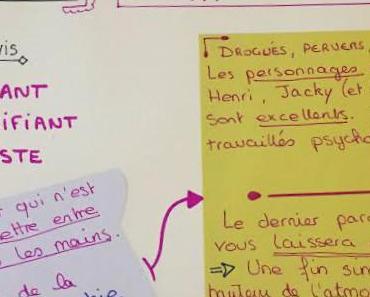 vis
ANT
IFIANT
STE
qui n'est
ettre entre
les mains.
de la
DROGUÉS, PERVERS,
Les personnages
Henri, Jacky (et
sont excellents.
travaillés psycho
Le dernier par
vous laissera
=> Une fin sur
milieu de l'atmo